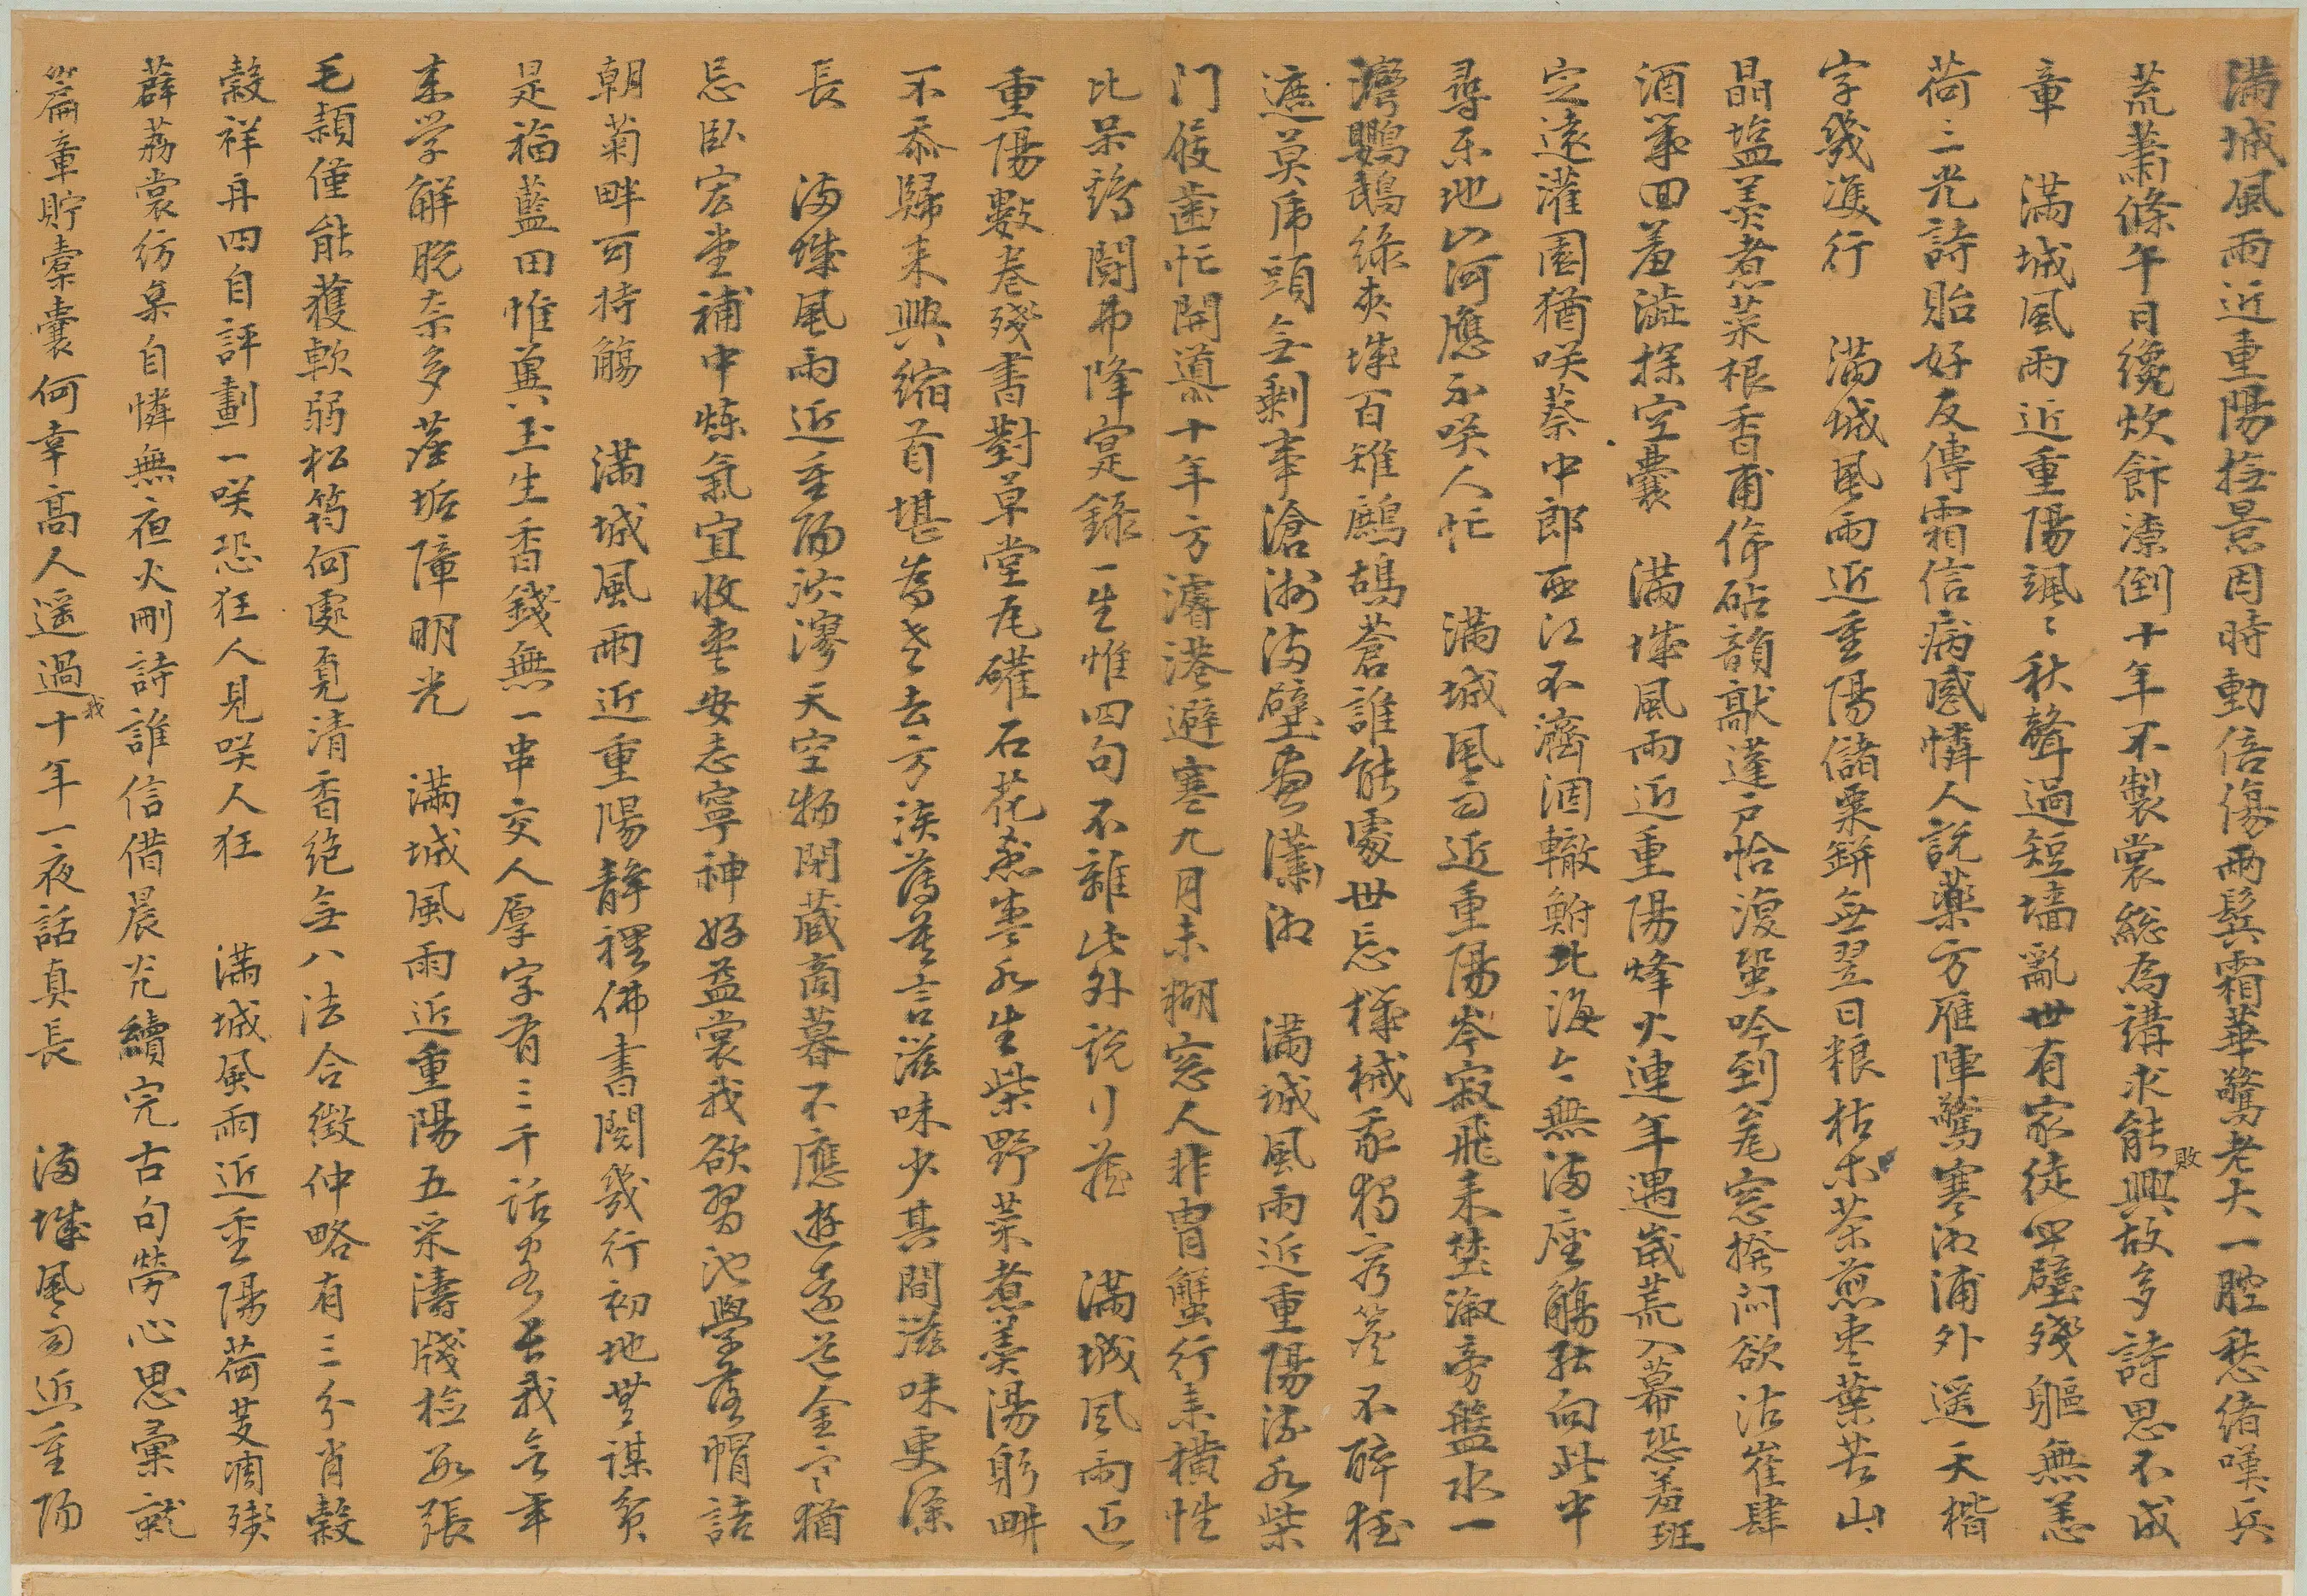 滿城風雨近重陽撫景因時動倍傷兩鬢霜華驚老大一腔愁緒嘆兵
荒蕭條午日纔炊餅潦倒十年不製裳總為講求能興敗故多詩思不成
章　滿城風雨近重陽颯〻秋聲過短墻亂世有家徒四壁殘軀無恙
荷三光詩貽好友傳霜信病感憐人說藥方雁陣驚寒湘浦外遥天楷
字幾㕠行　滿城風雨近重陽儲粟缾無翌日粮枯木茶煎枣葉苦山
晶塩羹煮菜根香甫停砧韻敲蓬户恰復蛩吟到窓撥悶欲沽崔肆
酒筭回羞澁探空囊　滿城風雨近重陽烽火連年遇歲荒入幕恐羞班
定遠灌園猶咲蔡中郎西江不濟涸轍鮒北海無滿座觴向此中
尋乐地山河應不咲人忙　滿城風雨近重陽岑寂飛来楚溆旁盤水一
灣鸚鵡綠夾城百雉鷓鴣蒼誰能處世忘機械我獨不醉狂
遮莫席頭無剩事滄洲滿壁畫瀟湘　滿城風雨近重陽流水柴
门屐齒忙開導十年方濬港避寒九月未糊窓人非冑蟹行素橫性
比呆鵝鬪弗降寔錄一生惟四句不雜此外說　滿城風雨近
重陽數卷殘書對草堂瓦罐石花煮枣水生柴野菜煮羹湯躬畊
不忝歸来興縮首堪為老去方淡薄言滋味少其間滋味更深
長　滿城風雨近重陽泬漻天空物閉藏商暮不應遊猶
忌臥宏堂補中煉氣宜收枣安志寧神好益裳我欲習池學落帽話
朝菊畔可持觴　滿城風雨近重陽静裡佛書閱幾行初地無謀貧
是福藍田惟兾玉生香錢無一串交人厚字有三千話長我今年
来学解脱奈多落垢障明光　滿城風雨近重陽五采濤牋檢取張
毛頴僅能獲軟弱松筠何處覓清香絶無八法合徴仲略有三分肖穀
穀祥再四自評劃一咲恐狂人見咲人狂　滿城風雨近重陽荷芰凋殘
薜荔裳彷棄自憐無夜火刪詩誰信借晨光續完古句勞心思彙就
篇章貯橐囊何幸高人遥過我十年一夜話真長　滿城風雨近重陽